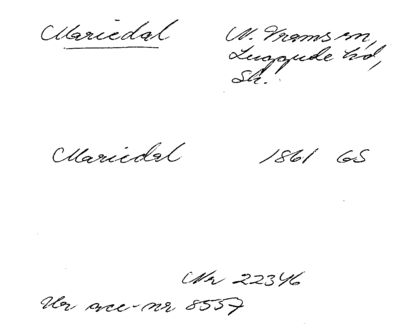 Mariedal N. Vrams sn,
Luggude hd,
Sk.
Mariedal 1861 GS
Nr 22346
Ur acc-nr 8557